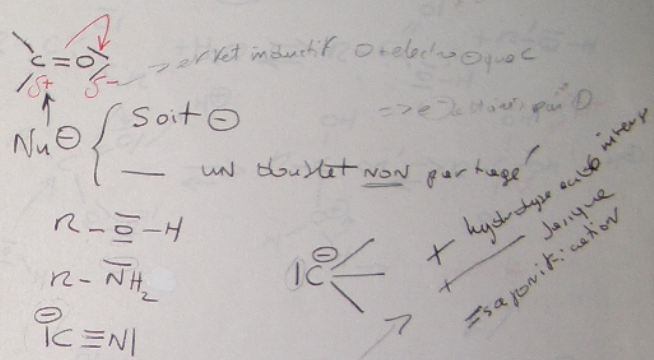 C=O
δ+ δ- → effet inductif O + electro ⊖ que C
=> e⁻ attirés par O
Nu⊖ { Soit ⊖
— un doublet NON partagé
R-O-H
R-NH₂
|C⊖
+ hydrolyse acide
+ — basique
= saponification
⊖|C≡N|